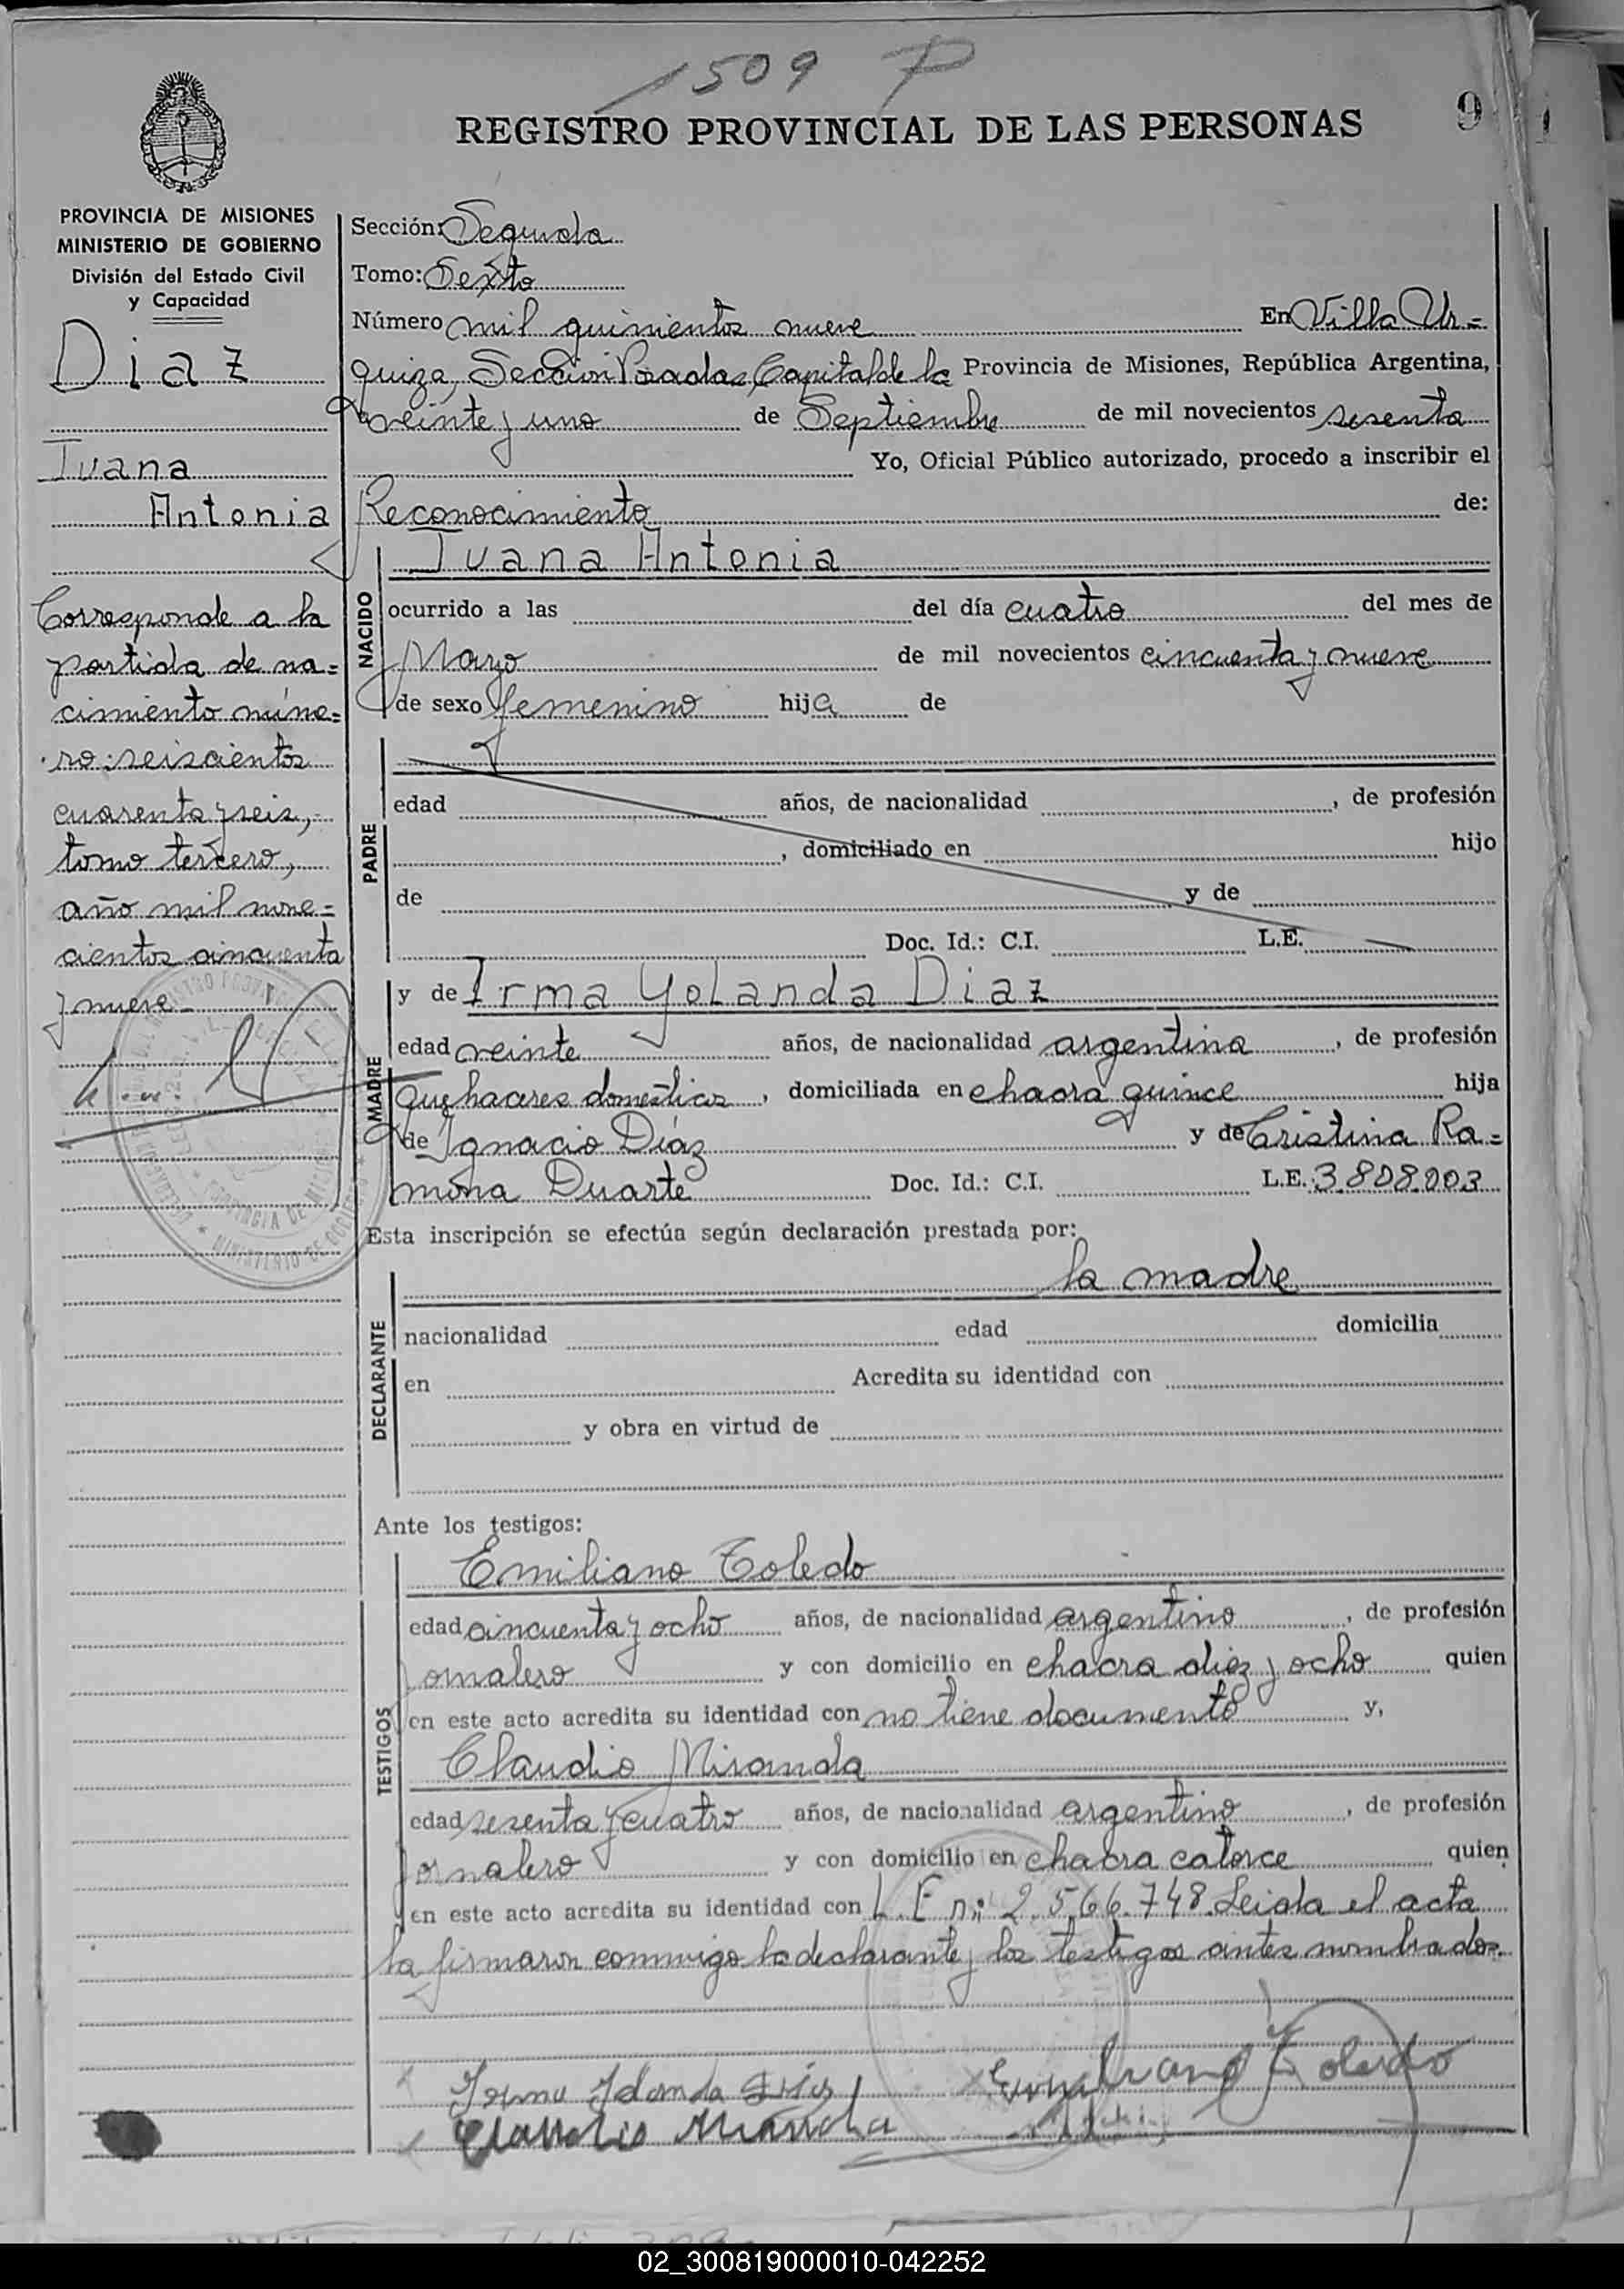 1509 P
REGISTRO PROVINCIAL DE LAS PERSONAS
9
PROVINCIA DE MISIONES
MINISTERIO DE GOBIERNO
División del Estado Civil
y Capacidad
Diaz
Juana
Antonia
Corresponde a la
partida de na=
cimiento núme=
ro: seiscientos
cuarenta y seis,
tomo tercero,
año mil nove=
cientos cincuenta
y nueve
Sección: Segunda
Tomo: Sexto
Número mil quinientos nueve En Villa Ur=
quiza, Sección Posadas, Capital de la Provincia de Misiones, República Argentina,
a veinte y uno de Septiembre de mil novecientos sesenta
Yo, Oficial Público autorizado, procedo a inscribir el
Reconocimiento de:
Juana Antonia
NACIDO
ocurrido a las del día cuatro del mes de
Marzo de mil novecientos cincuenta y nueve
de sexo femenino hija de
PADRE
edad años, de nacionalidad , de profesión
, domiciliado en hijo
de y de
Doc. Id.: C.I. L.E.
MADRE
y de Irma Yolanda Diaz
edad veinte años, de nacionalidad argentina , de profesión
quehaceres domésticos , domiciliada en chacra quince hija
de Ignacio Díaz y de Cristina Ra=
mona Duarte Doc. Id.: C.I. L.E. 3.808.003
Esta inscripción se efectúa según declaración prestada por:
la madre
DECLARANTE
nacionalidad edad domicilia
en Acredita su identidad con
y obra en virtud de
Ante los testigos:
TESTIGOS
Emiliano Toledo
edad cincuenta y ocho años, de nacionalidad argentino , de profesión
jornalero y con domicilio en chacra diez y ocho quien
en este acto acredita su identidad con no tiene documento y,
Claudio Miranda
edad sesenta y cuatro años, de nacionalidad argentino , de profesión
jornalero y con domicilio en chacra catorce quien
en este acto acredita su identidad con L.E n: 2.566.748. Leida el acta
la firmaron conmigo la declarante y los testigos antes nombrados.
Toledo
02_300819000010-042252